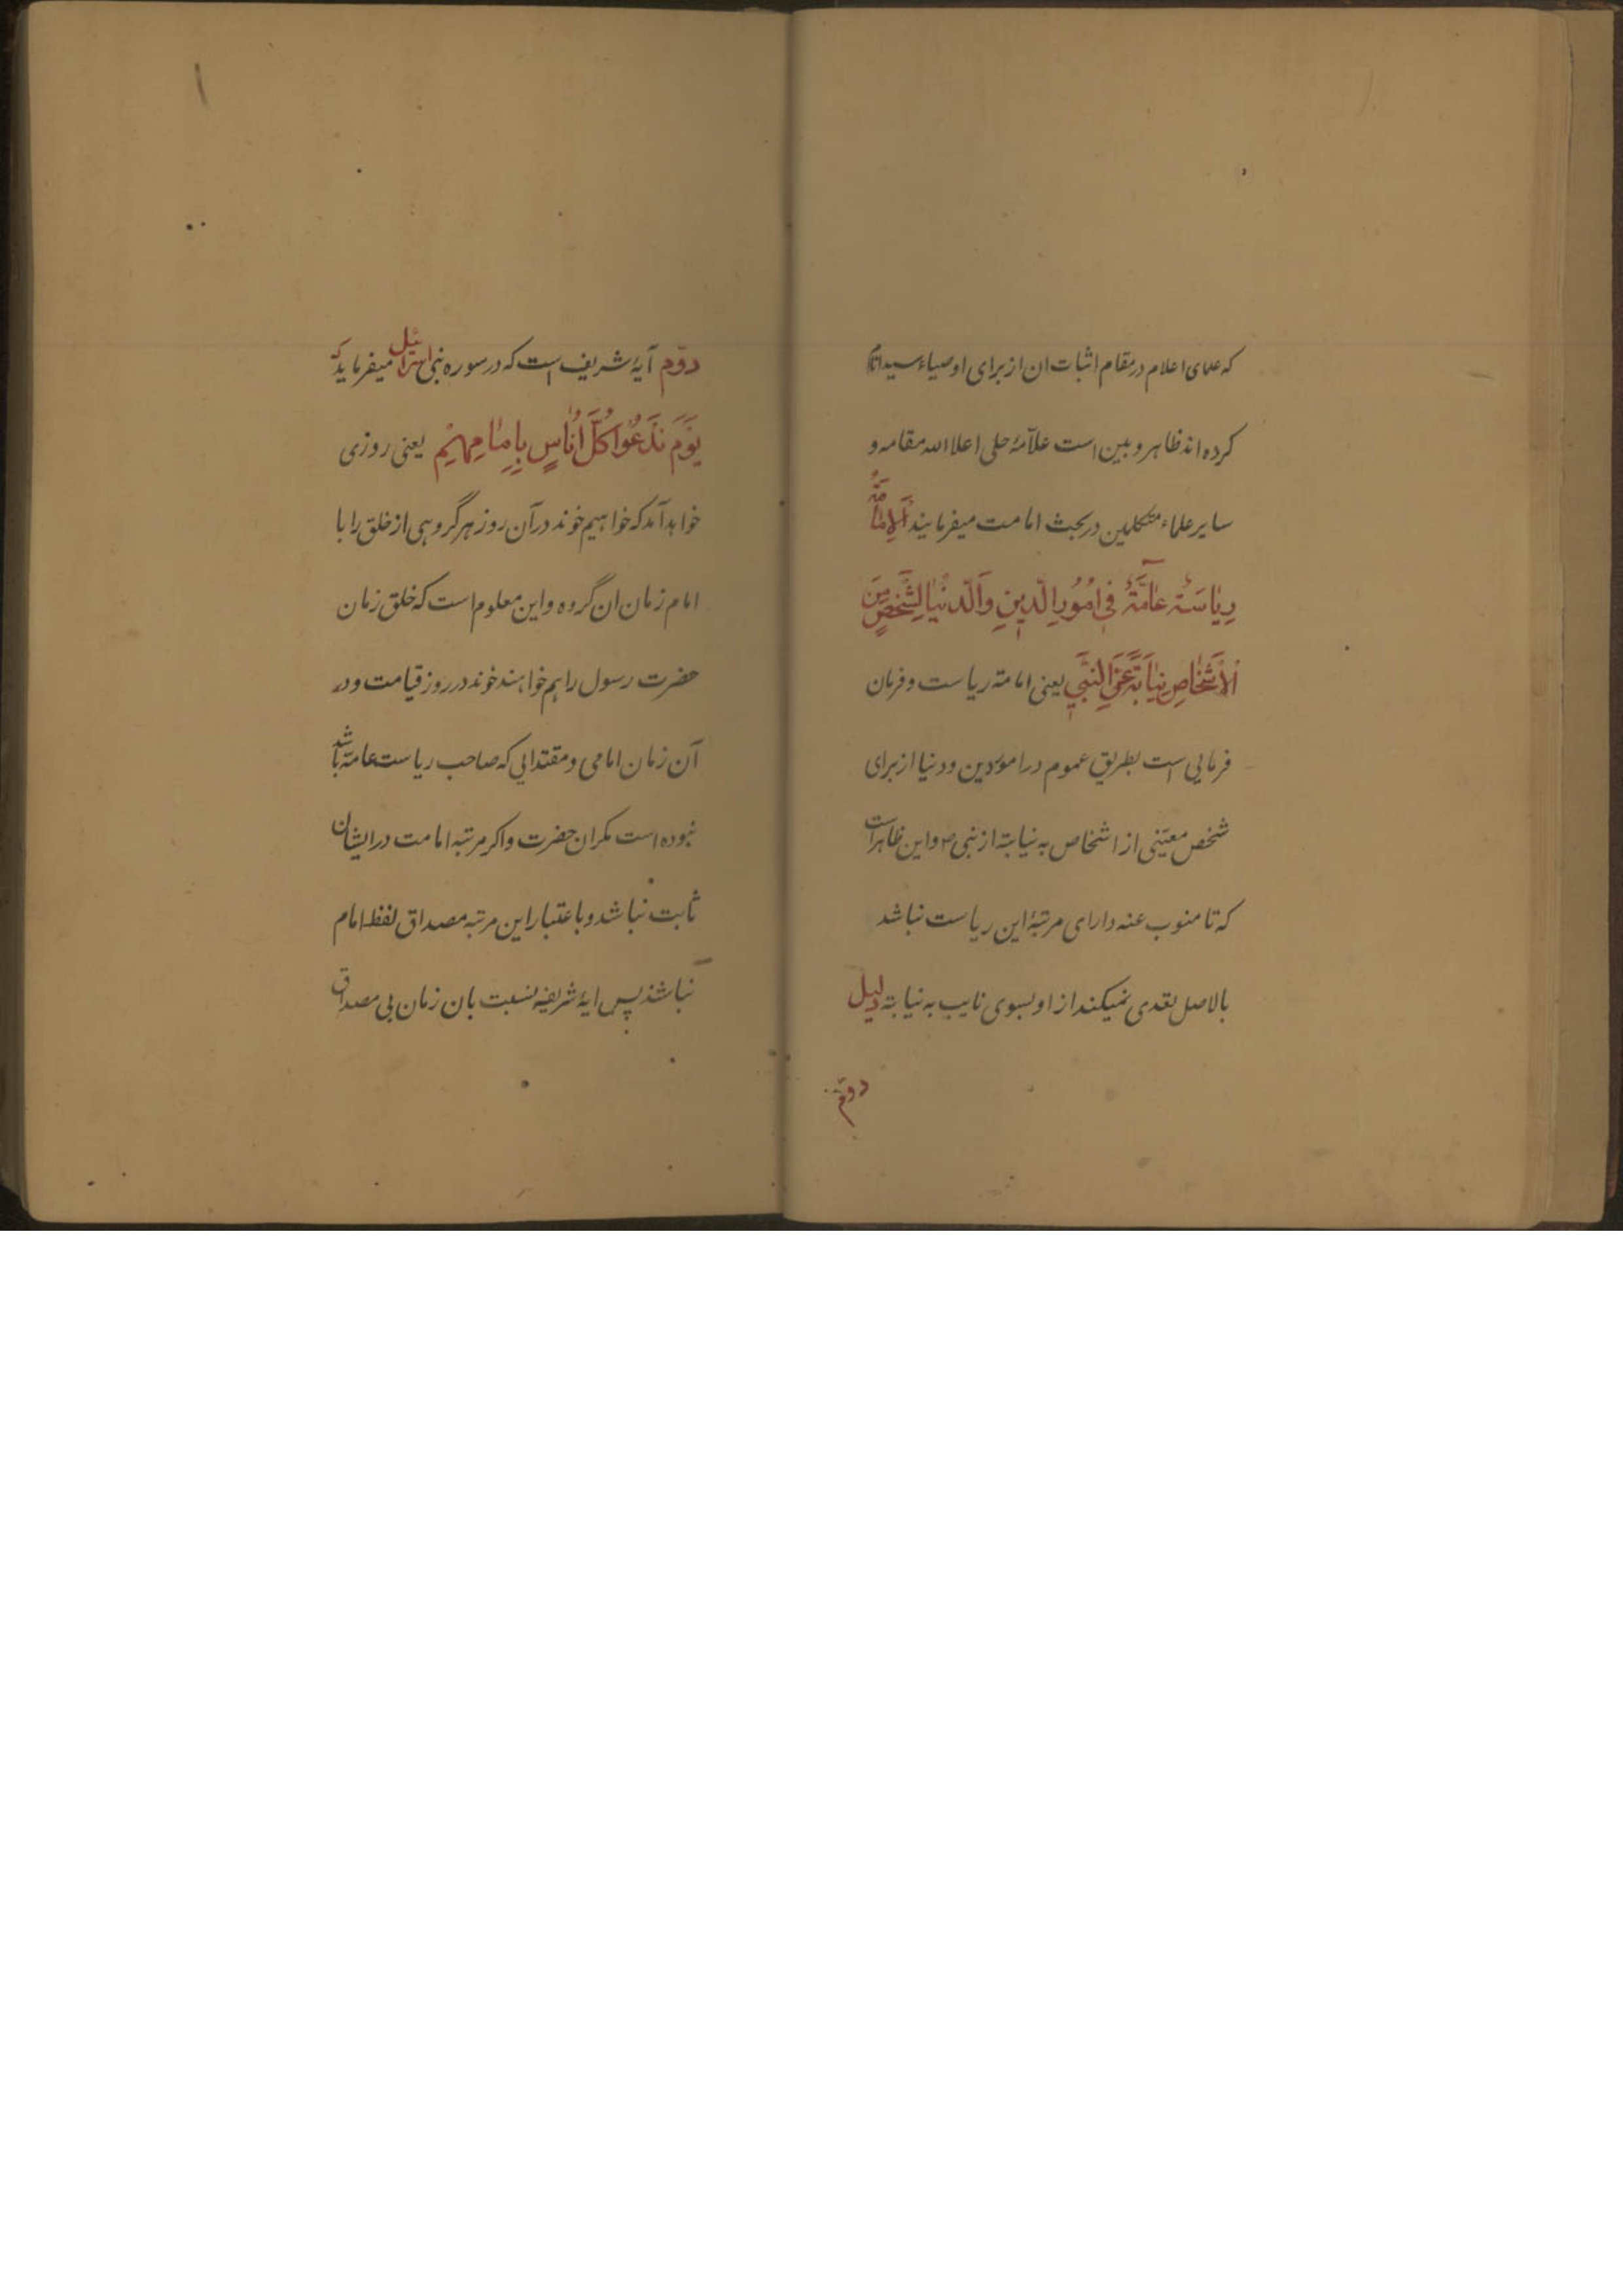 که علمای اعلام در مقام اثبات ان از برای اوصیاء سید انام
کرده اند ظاهر و بین است علامهٔ حلی اعلا الله مقامه و
سایر علماء متکلمین در بحث امامت میفرمایند اَلاِمامَةُ
رِیاسَةٌ عامَّةٌ فی اُمُورِ الّدینِ وَالّدنْیا لِشَخْصٍ مِنَ
الْاَشْخاصِ نِیابَةً عَنِ النَّبِیِ یعنی امامة ریاست و فرمان
فرمایی است بطریق عموم در امور دین و دنیا از برای
شخص معیّنی از اشخاص به نیابة از نبی ص و این ظاهر است
که تا منوب عنه دارای مرتبهٔ این ریاست نباشد
بالاصل تعدی نمیکند از او بسوی نایب به نیابة دلیل
دوّم
دوّم آیهٔ شریف است که در سوره بنی اسرائیل میفرماید که
یَوْمَ نَدْعُوا کُلَّ اُناسٍ بِاِمامِهِمْ یعنی روزی
خواهد آمد که خواهیم خوند در آن روز هر گروهی از خلق را با
امام زمان ان گروه و این معلوم است که خلق زمان
حضرت رسول را هم خواهند خوند در روز قیامت و در
آن زمان امامی و مقتدایی که صاحب ریاست عامة باشد
نبوده است مکر ان حضرت و اکر مرتبه امامت در ایشان
ثابت نباشد و باعتبار این مرتبه مصداق لفظ امام
نباشند پس ایهٔ شریفه نسبت بان زمان بی مصداق